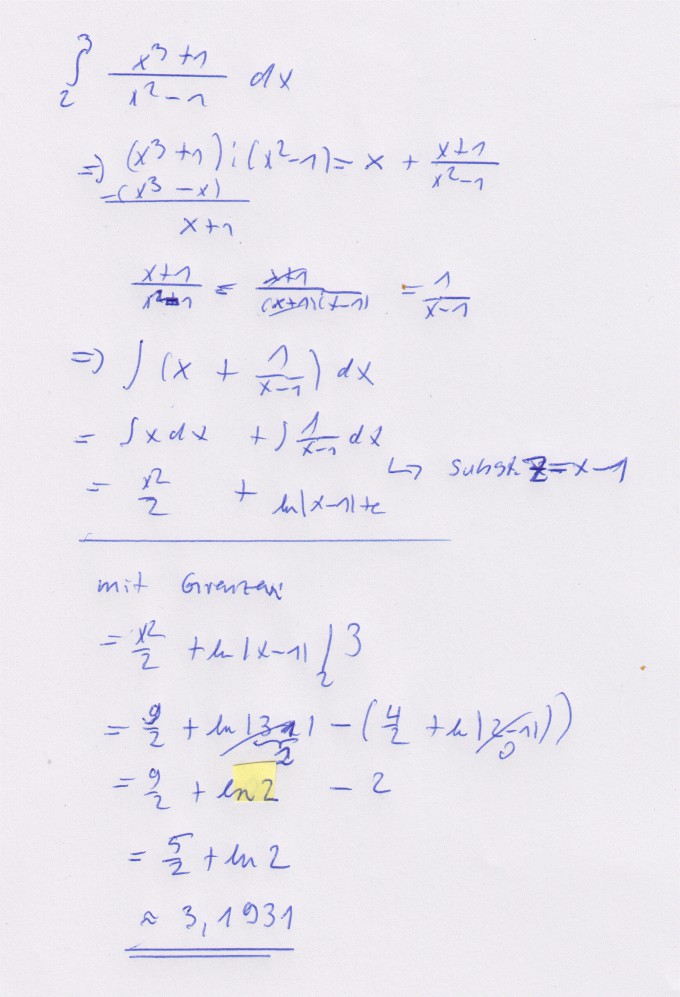 ∫₂³ (x³+1)/(x²-1) dx
=> (x³+1):(x²-1) = x + (x+1)/(x²-1)
-(x³-x)
x+1
(x+1)/(x²-1) = (x+1)/((x+1)(x-1)) = 1/(x-1)
=> ∫(x + 1/(x-1)) dx
= ∫x dx + ∫ 1/(x-1) dx
↳ Subst. z=x-1
= x²/2 + ln|x-1|+c
mit Grenzen:
= x²/2 + ln|x-1| |₂³
= 9/2 + ln|3-1| - (4/2 + ln|2-1|)
2 0
= 9/2 + ln 2 - 2
= 5/2 + ln 2
≈ 3,1931